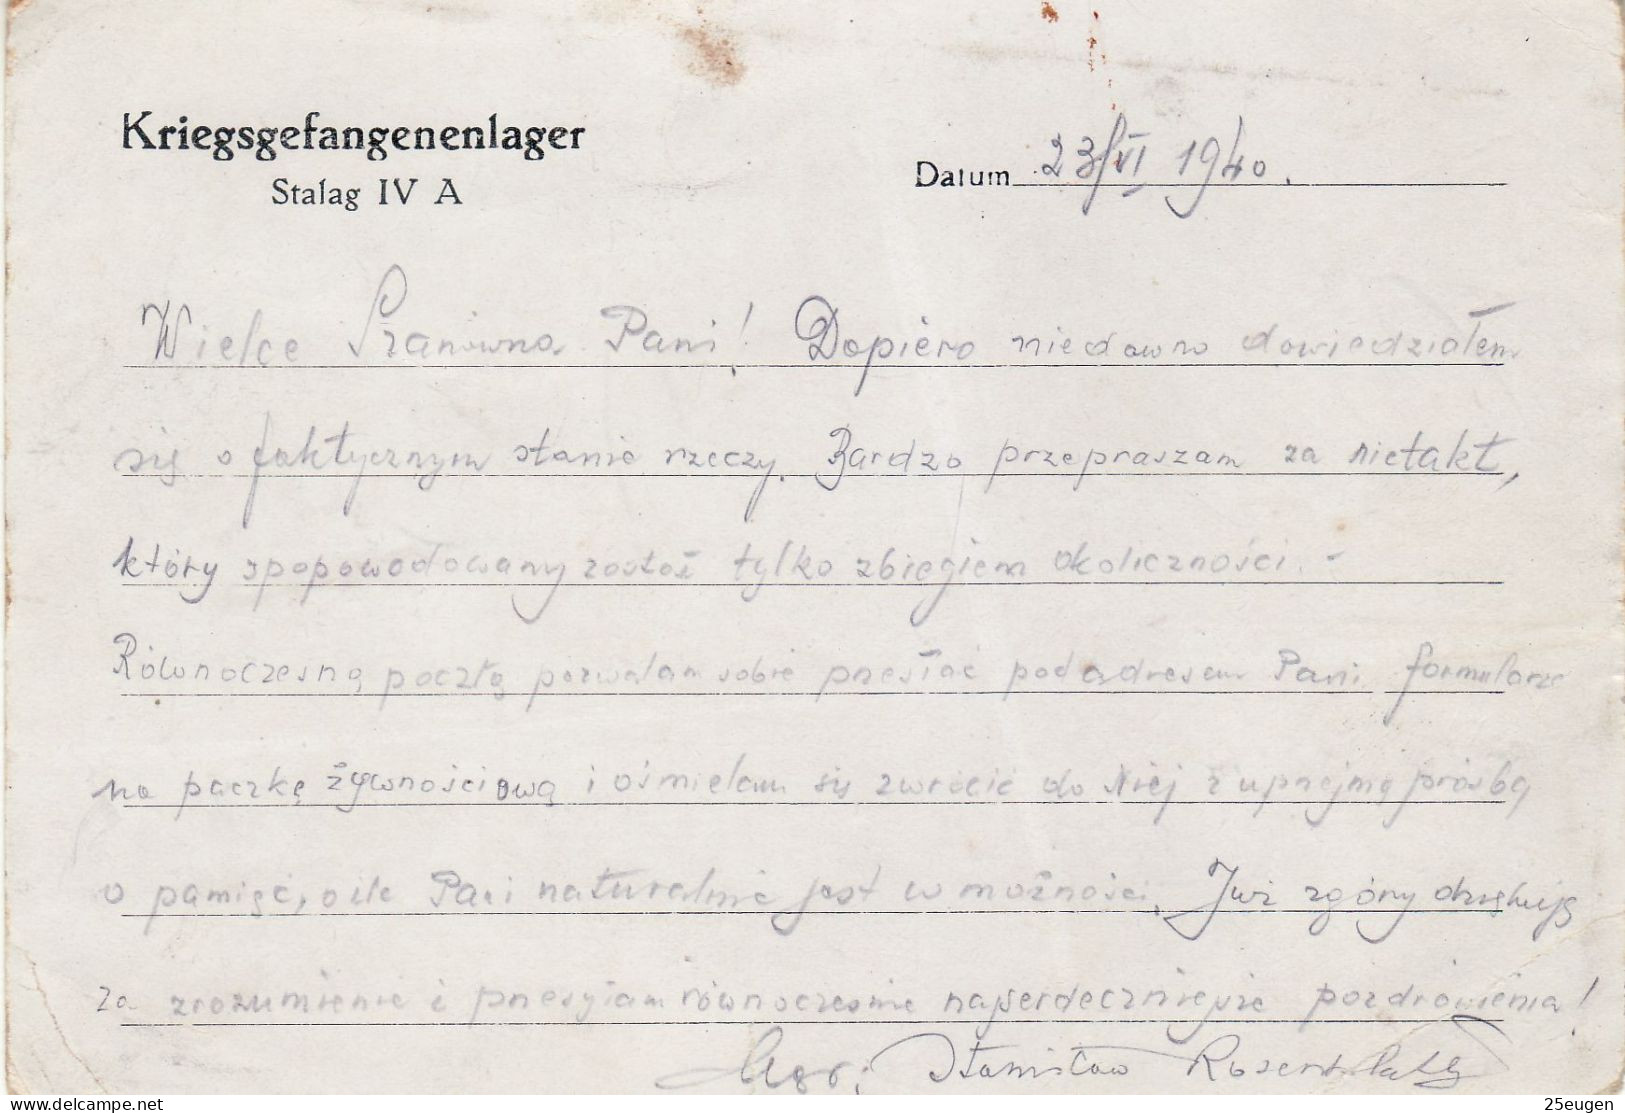 Kriegsgefangenenlager
Stalag IV A
Datum 23/VI 1940.
Wielce Szanowna Pani! Dopiero niedawno dowiedziałem
się o faktycznym stanie rzeczy. Bardzo przepraszam za nietakt,
który spopowodowany został tylko zbiegiem okoliczności. -
Równoczesną pocztą pozwalam sobie przesłać pod adresem Pani formularz
na paczkę żywnościową i ośmielam się zwrócić do Niej z uprzejmą prośbą
o pamięć, o ile Pani naturalnie jest w możności. Już zgóry dziękuję
za zrozumienie i przesyłam równocześnie najserdeczniejsze pozdrowienia!
Mgr. Stanisław
www.delcampe.net
25eugen